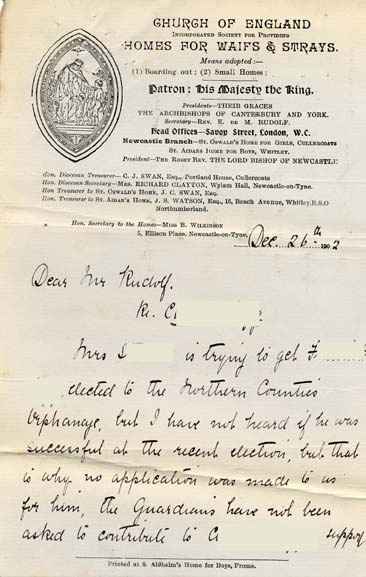 CHURCH OF ENGLAND
INCORPORATED SOCIETY FOR PROVIDING
HOMES FOR WAIFS & STRAYS.
Means adopted:—
(1) Boarding out; (2) Small Homes:
Patron: His Majesty the King.
Presidents—THEIR GRACES
THE ARCHBISHOPS OF CANTERBURY AND YORK.
Secretary—REV. E. DE M. RUDOLF.
Head Offices—Savoy Street, London, W.C.
Newcastle Branch—ST. OSWALD'S HOME FOR GIRLS, CULLERCOATS
ST. AIDANS HOME FOR BOYS, WHITLEY.
President—THE RIGHT REV. THE LORD BISHOP OF NEWCASTLE
Hon. Diocesan Treasurer— C. J. SWAN, Esq., Portland House, Cullercoats
Hon. Diocesan Secretary—MRS. RICHARD CLAYTON, Wylam Hall, Newcastle-on-Tyne.
Hon Treasurer to ST. OSWALD'S HOME, J. C. SWAN, Esq.
Hon. Treasurer to ST. AIDAN'S HOME, J. S. WATSON, Esq., 15, Beach Avenue, Whitley, R.S.O
Northumberland.
Hon. Secretary to the Homes—MISS B. WILKINSON
5, Ellison Place, Newcastle-on-Tyne,
Dec. 26th 1902
Dear Mr Rudolf.
Re. C
Mrs is trying to get F
elected to the Northern Counties
Orphanage, but I have not heard if he was
successful at the recent election, but that
is why no application was made to us
for him, the Guardians have not been
asked to contribute to C support
Printed at S. Aldhelm's Home for Boys, Frome.